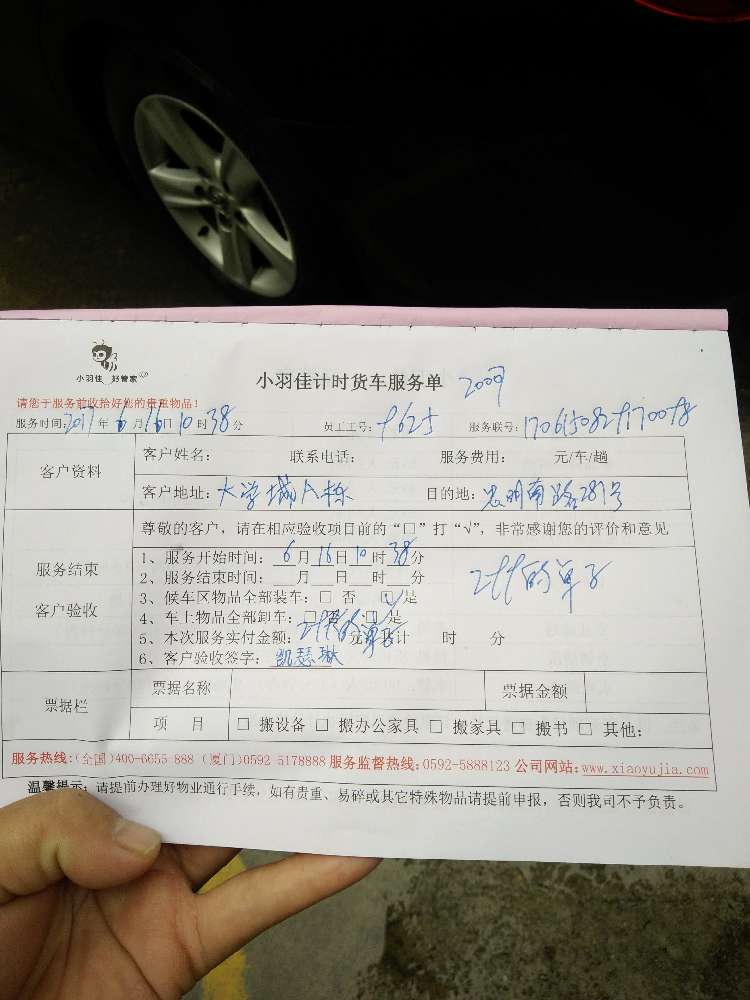 小羽佳 好管家
小羽佳计时货车服务单
请您于服务前收拾好您的贵重物品！
服务时间：2017年6月16日10时38分 员工工号： 服务联号：
客户资料
客户姓名： 联系电话： 服务费用： 元/车/趟
客户地址：大学城A栋 目的地：思明南路281号
服务结束
客户验收
尊敬的客户，请在相应验收项目前的“□”打“√”，非常感谢您的评价和意见
1、服务开始时间：6月16日10时38分
2、服务结束时间： 月 日 时 分
3、候车区物品全部装车：□ 否 ☑ 是
4、车上物品全部卸车：□ 否 □ 是
5、本次服务实付金额： 元 共计 时 分
6、客户验收签字：凯瑟琳
的单子
票据栏
票据名称 票据金额
项 目 □ 搬设备 □ 搬办公家具 □ 搬家具 □ 搬书 □ 其他：
服务热线：(全国)400-6655 888 (厦门)0592 5178888 服务监督热线：0592-5888123 公司网站：www.xiaoyujia.com
温馨提示：请提前办理好物业通行手续，如有贵重、易碎或其它特殊物品请提前申报，否则我司不予负责。